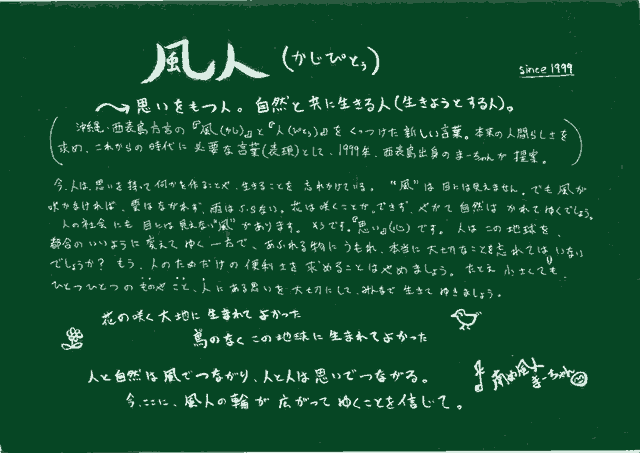 風人(かじぴとぅ)
since 1999
思いをもつ人。自然と共に生きる人(生きようとする人)。
(沖縄・西表島方言の『風(かじ)』と『人(ぴとぅ)』を くっつけた新しい言葉。本来の人間らしさを
求め、これからの時代に必要な言葉(表現)として、1999年、西表島出身のまーちゃんが提案。)
今、人は、思いを持って何かを作ることや、生きることを 忘れかけている。"風"は 目には見えません。でも風が
吹かなければ、雲はながれず、雨はふらない。花は咲くことができず、やがて自然は かれてゆくでしょう。
人の社会にも 目には見えない"風"があります。そうです。『思い』(心)です。人は この地球を、
都合のいいように変えてゆく一方で、あふれる物にうもれ、本当に大切なことを忘れてはいない
でしょうか? もう、人のためだけの便利さを求めることはやめましょう。たとえ小さくても、
ひとつひとつのものやこと、人にある思いを大切にして、みんなで生きてゆきましょう。
花の咲く大地に生まれてよかった
鳥のなくこの地球に生まれてよかった
人と自然は風でつながり、人と人は思いでつながる。
今、ここに、風人の輪が広がってゆくことを信じて。
南ぬ風人
まーちゃん